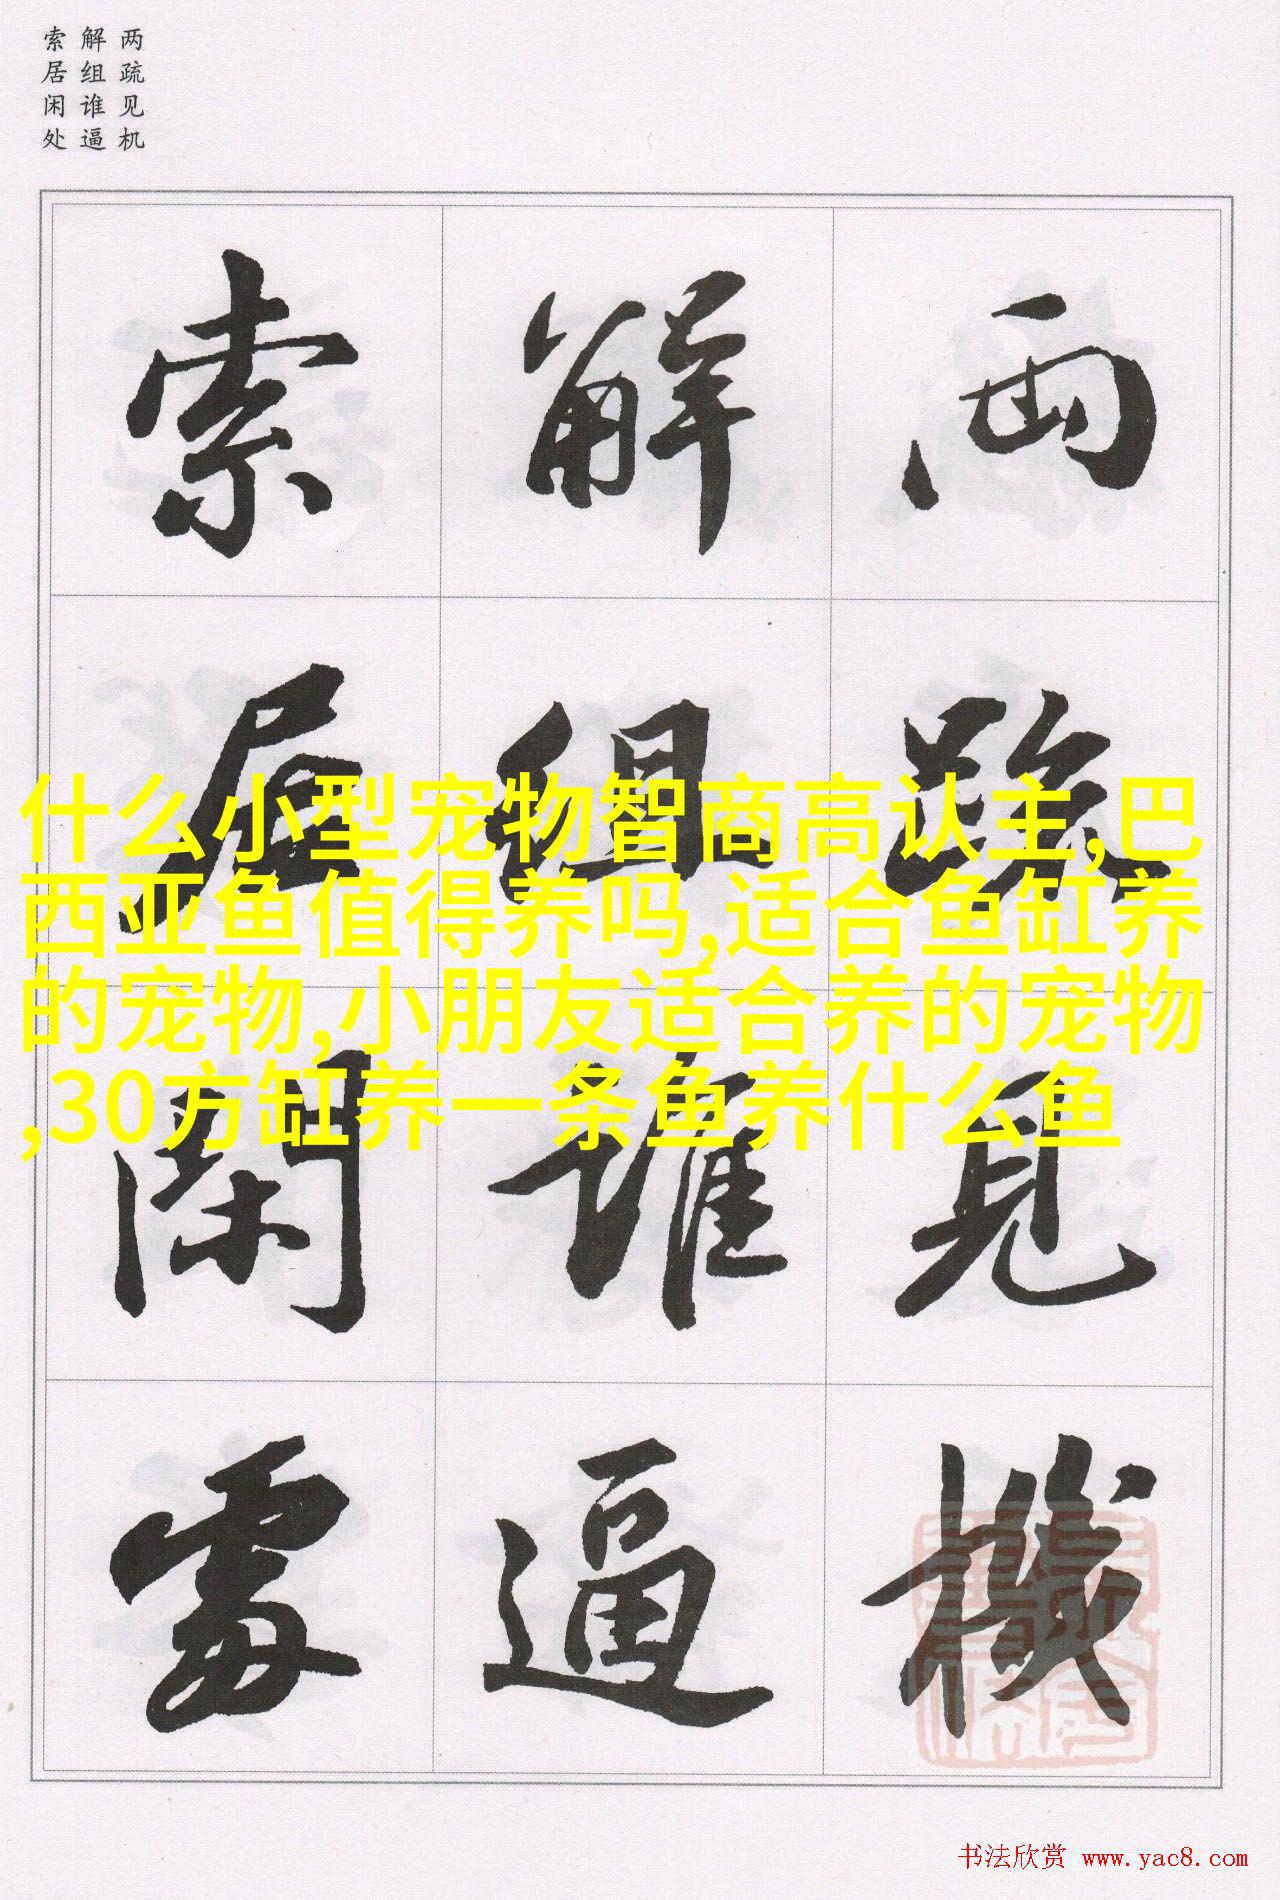 两疏见机
解组谁逼
索居闲处
两疏见機
解组谁逼
索居閑處
什么小型宠物智商高认主,巴
西亚鱼值得养吗,适合鱼缸养
的宠物,小朋友适合养的宠物
,30方缸养一条鱼养什么鱼
书法欣赏 www.yac8.com